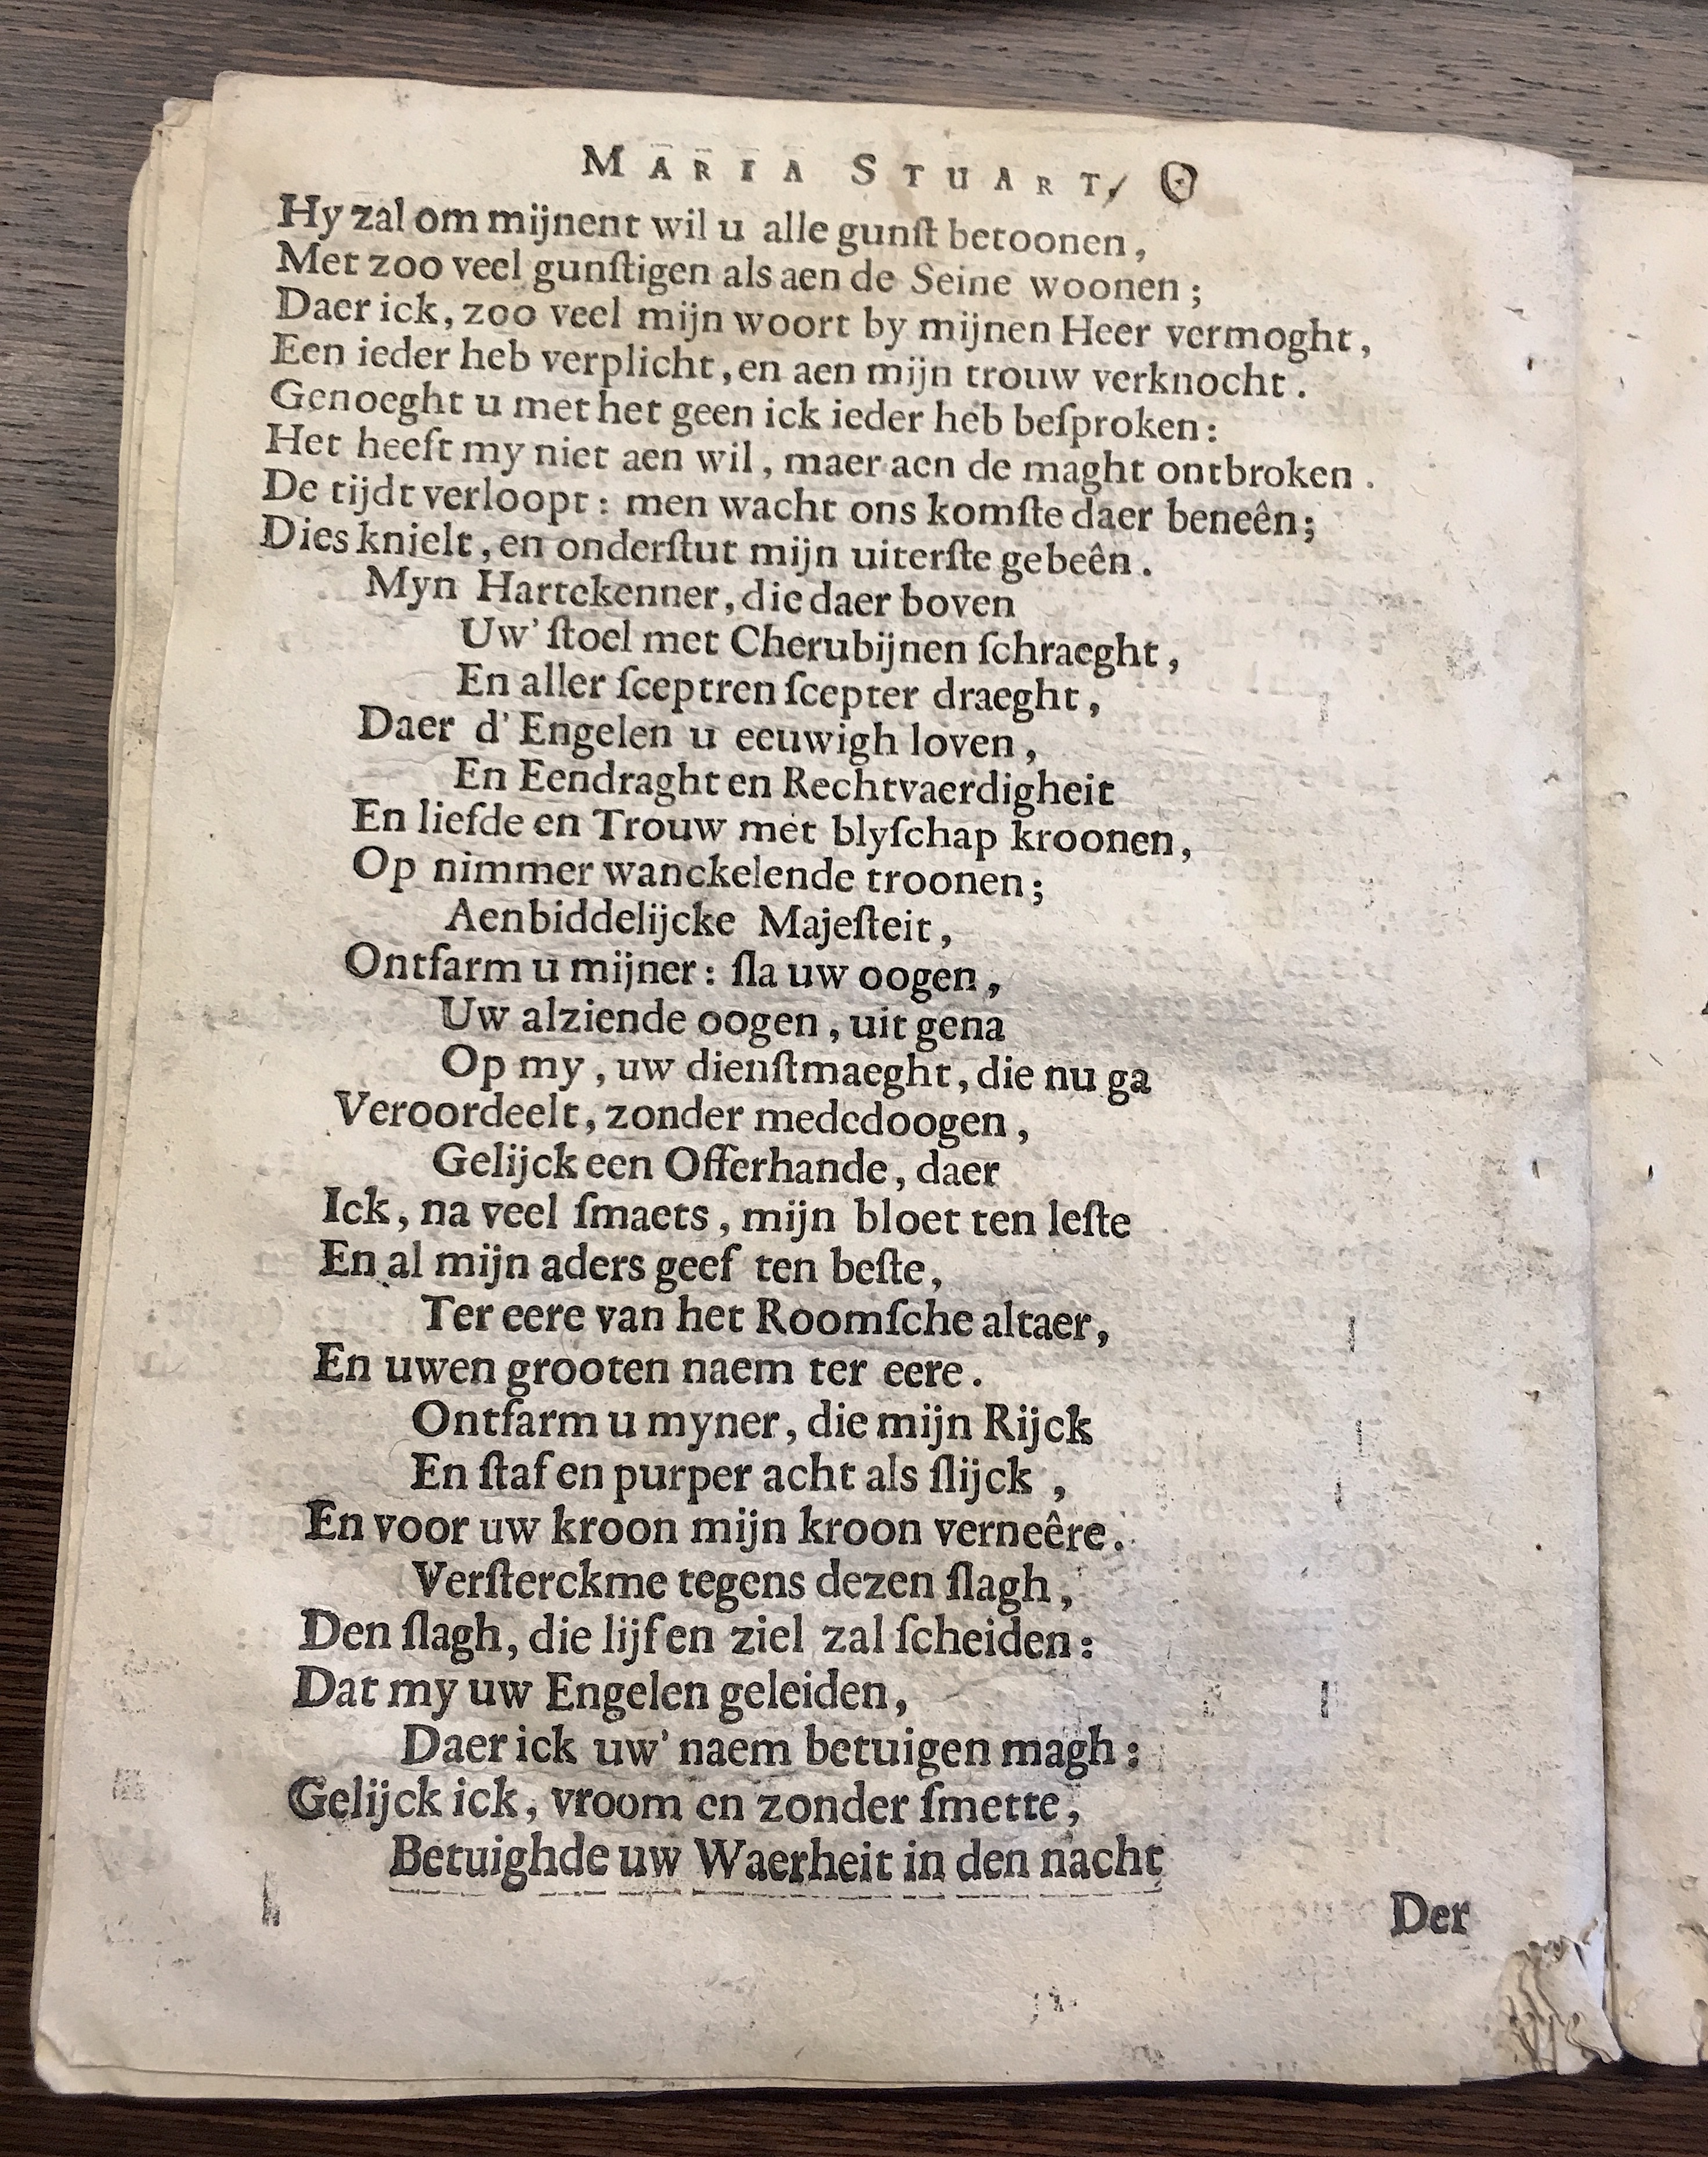 MARIA STUART,
Hy zal om mijnent wil u alle gunſt betoonen,
Met zoo veel gunſtigen als aen de Seine woonen;
Daer ick, zoo veel mijn woort by mijnen Heer vermoght,
Een ieder heb verplicht, en aen mijn trouw verknocht.
Genoeght u met het geen ick ieder heb beſproken:
Het heeft my niet aen wil, maer aen de maght ontbroken.
De tijdt verloopt: men wacht ons komſte daer beneên;
Dies knielt, en onderſtut mijn uiterſte gebeên.
Myn Hartekenner, die daer boven
Uw' ſtoel met Cherubijnen ſchraeght,
En aller ſceptren ſcepter draeght,
Daer d' Engelen u eeuwigh loven,
En Eendraght en Rechtvaerdigheit
En liefde en Trouw met blyſchap kroonen,
Op nimmer wanckelende troonen;
Aenbiddelijcke Majeſteit,
Ontfarm u mijner: ſla uw oogen,
Uw alziende oogen, uit gena
Op my, uw dienſtmaeght, die nu ga
Veroordeelt, zonder mededoogen,
Gelijck een Offerhande, daer
Ick, na veel ſmaets, mijn bloet ten leſte
En al mijn aders geef ten beſte,
Ter eere van het Roomſche altaer,
En uwen grooten naem ter eere.
Ontfarm u myner, die mijn Rijck
En ſtaf en purper acht als ſlijck,
En voor uw kroon mijn kroon verneêre.
Verſterckme tegens dezen ſlagh,
Den ſlagh, die lijf en ziel zal ſcheiden:
Dat my uw Engelen geleiden,
Daer ick uw' naem betuigen magh:
Gelijck ick, vroom en zonder ſmette,
Betuighde uw Waerheit in den nacht
Der